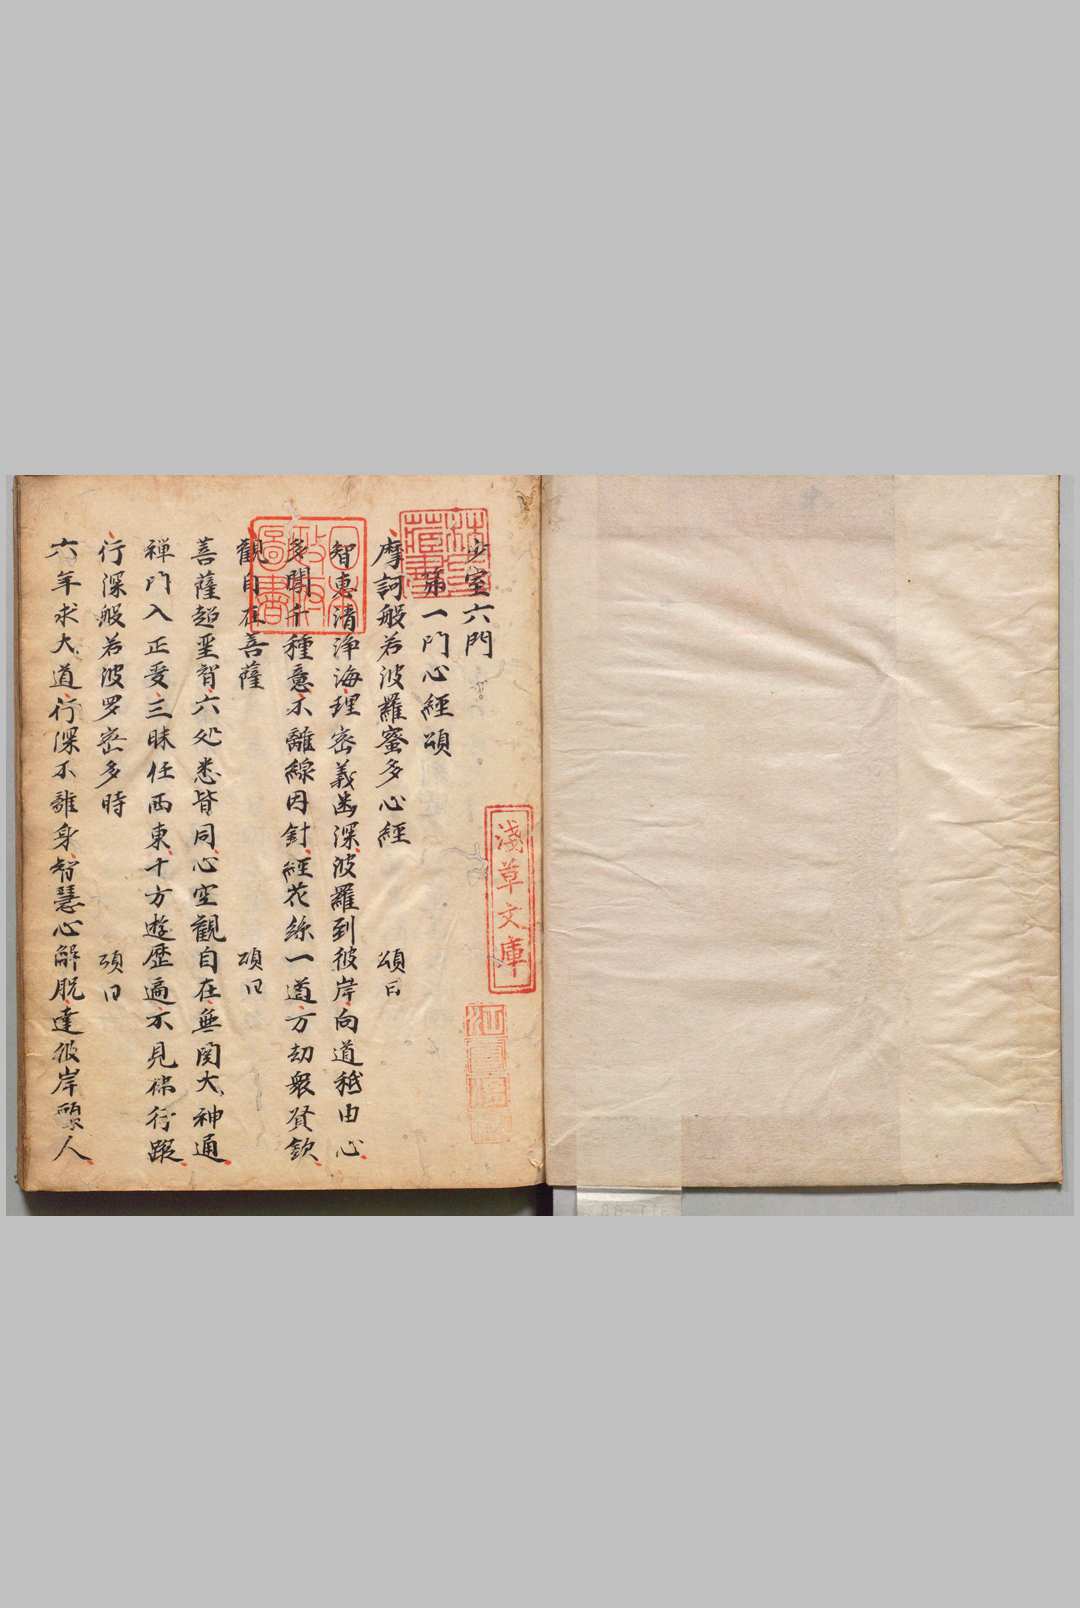 少室六門
第一門心經頌
摩訶般若波羅蜜多心經 頌曰
智惠清淨海理密義幽深波羅到彼岸向道秖由心
多聞千種意不離線因針經花糸一道方劫衆賢欽
觀自在菩薩 頌曰
菩薩超聖智六処悉皆同心空觀自在無閡大神通
禅門入正受三昧任西東十方遊歴遍不見佛行蹤
行深般若波罗密多時 頌曰
六年求大道行深不離身智慧心解脱達彼岸頭人
淺草文庫